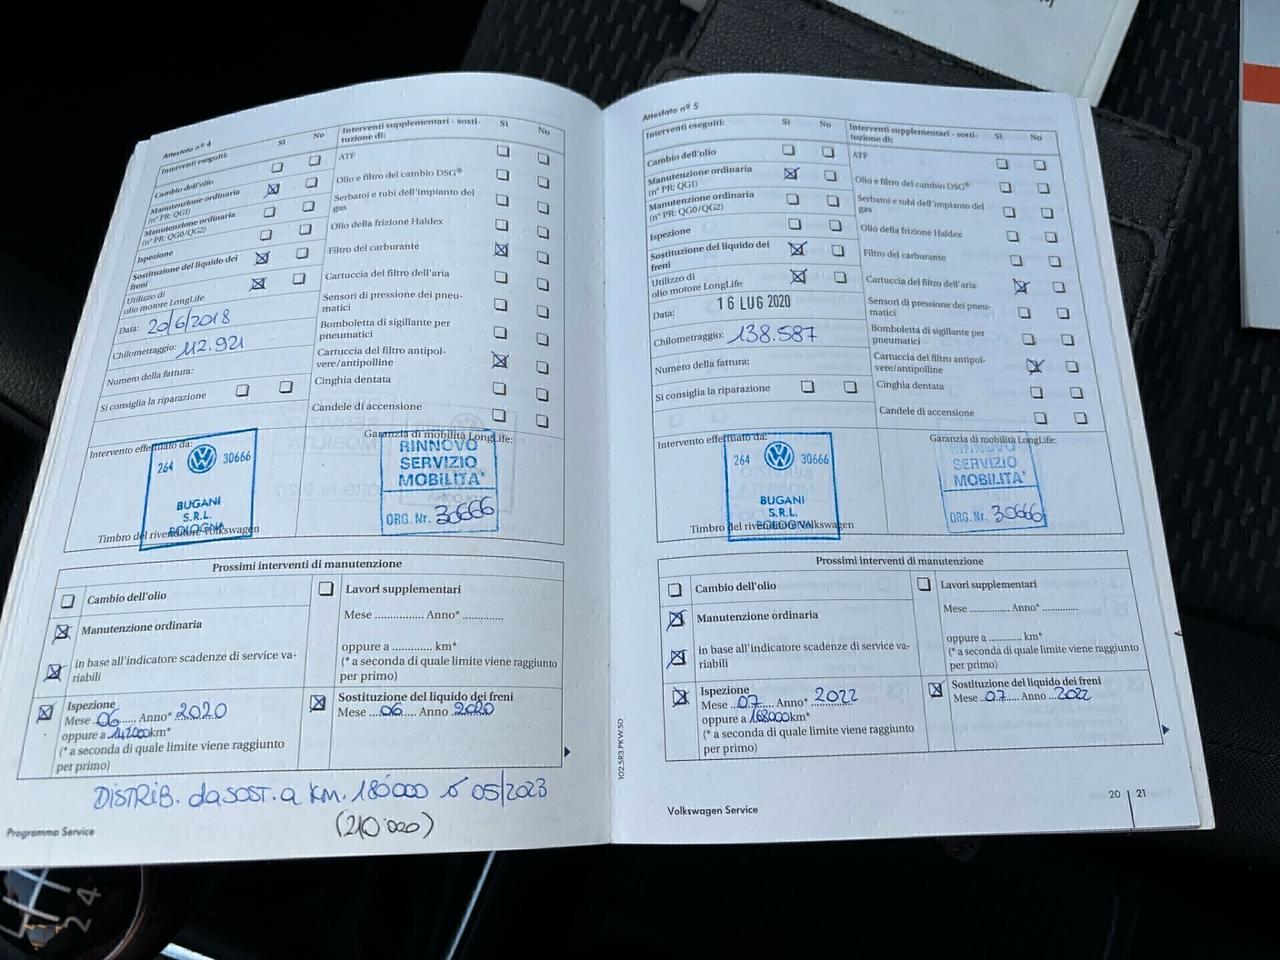 Attestato nº 4
Interventi eseguiti:
Sì
No
Cambio dell'olio
Manutenzione ordinaria
(nº PR: QG1)
Manutenzione ordinaria
(nº PR: QG0/QG2)
Ispezione
Sostituzione del liquido dei
freni
Utilizzo di
olio motore LongLife
Data: 20/6/2018
Chilometraggio: 112.921
Numero della fattura:
Si consiglia la riparazione
Interventi supplementari - sosti-
tuzione di:
Sì
No
ATF
Olio e filtro del cambio DSG®
Serbatoi e tubi dell'impianto del
gas
Olio della frizione Haldex
Filtro del carburante
Cartuccia del filtro dell'aria
Sensori di pressione dei pneu-
matici
Bomboletta di sigillante per
pneumatici
Cartuccia del filtro antipol-
vere/antipolline
Cinghia dentata
Candele di accensione
Intervento effettuato da:
264 30666
BUGANI
S.R.L.
BOLOGNA
Timbro del rivenditore Volkswagen
Garanzia di mobilità LongLife:
RINNOVO
SERVIZIO
MOBILITA'
ORG. Nr. 30666
Prossimi interventi di manutenzione
Cambio dell'olio
Manutenzione ordinaria
in base all'indicatore scadenze di service va-
riabili
Ispezione
Mese ..06...... Anno* 2020
oppure a 142000km*
(* a seconda di quale limite viene raggiunto
per primo)
Lavori supplementari
Mese ................ Anno* .............
oppure a ............ km*
(* a seconda di quale limite viene raggiunto
per primo)
Sostituzione del liquido dei freni
Mese ....06..... Anno 2020
DISTRIB. da SOST. a KM. 180000 o 05/2023
(210.000)
Programma Service
102.5R3.PKW.50
Attestato nº 5
Interventi eseguiti:
Sì
No
Cambio dell'olio
Manutenzione ordinaria
(nº PR: QG1)
Manutenzione ordinaria
(nº PR: QG0/QG2)
Ispezione
Sostituzione del liquido dei
freni
Utilizzo di
olio motore LongLife
Data: 16 LUG 2020
Chilometraggio: 138.587
Numero della fattura:
Si consiglia la riparazione
Interventi supplementari - sosti-
tuzione di:
Sì
No
ATF
Olio e filtro del cambio DSG®
Serbatoi e tubi dell'impianto del
gas
Olio della frizione Haldex
Filtro del carburante
Cartuccia del filtro dell'aria
Sensori di pressione dei pneu-
matici
Bomboletta di sigillante per
pneumatici
Cartuccia del filtro antipol-
vere/antipolline
Cinghia dentata
Candele di accensione
Intervento effettuato da:
264 30666
BUGANI
S.R.L.
BOLOGNA
Timbro del rivenditore Volkswagen
Garanzia di mobilità LongLife:
RINNOVO
SERVIZIO
MOBILITA'
ORG. Nr. 30666
Prossimi interventi di manutenzione
Cambio dell'olio
Manutenzione ordinaria
in base all'indicatore scadenze di service va-
riabili
Ispezione
Mese ..07..... Anno* 2022
oppure a 168000km*
(* a seconda di quale limite viene raggiunto
per primo)
Lavori supplementari
Mese .............. Anno* .............
oppure a ............ km*
(* a seconda di quale limite viene raggiunto
per primo)
Sostituzione del liquido dei freni
Mese ..07..... Anno ..2022
Volkswagen Service
20 | 21
2 4